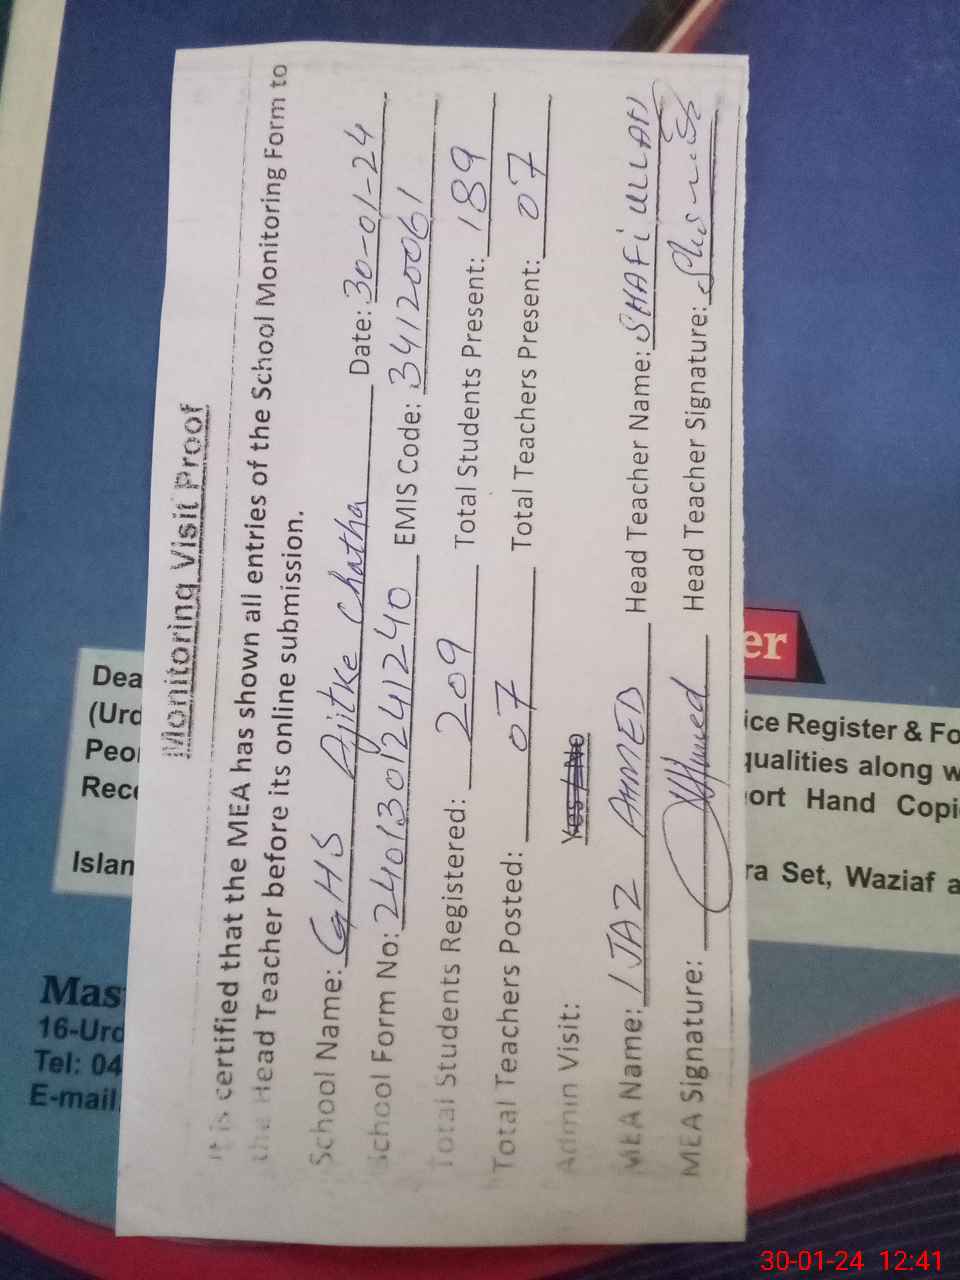 Monitoring Visit Proof
It is certified that the MEA has shown all entries of the School Monitoring Form to
the Head Teacher before its online submission.
School Name: GHS Ajitke Chatha Date: 30-01-24
School Form No: 2401301241240 EMIS Code: 34120061
Total Students Registered: 209 Total Students Present: 189
Total Teachers Posted: 07 Total Teachers Present: 07
Admin Visit: Yes / No
MEA Name: IJAZ AHMED Head Teacher Name: SHAFIULLAH
MEA Signature: Head Teacher Signature:
Dea
(Urd
Peo
Rec
Islan
Mas
16-Urd
Tel: 04
E-mail
er
ice Register & Fo
qualities along w
ort Hand Copi
ra Set, Waziaf a
30-01-24 12:41